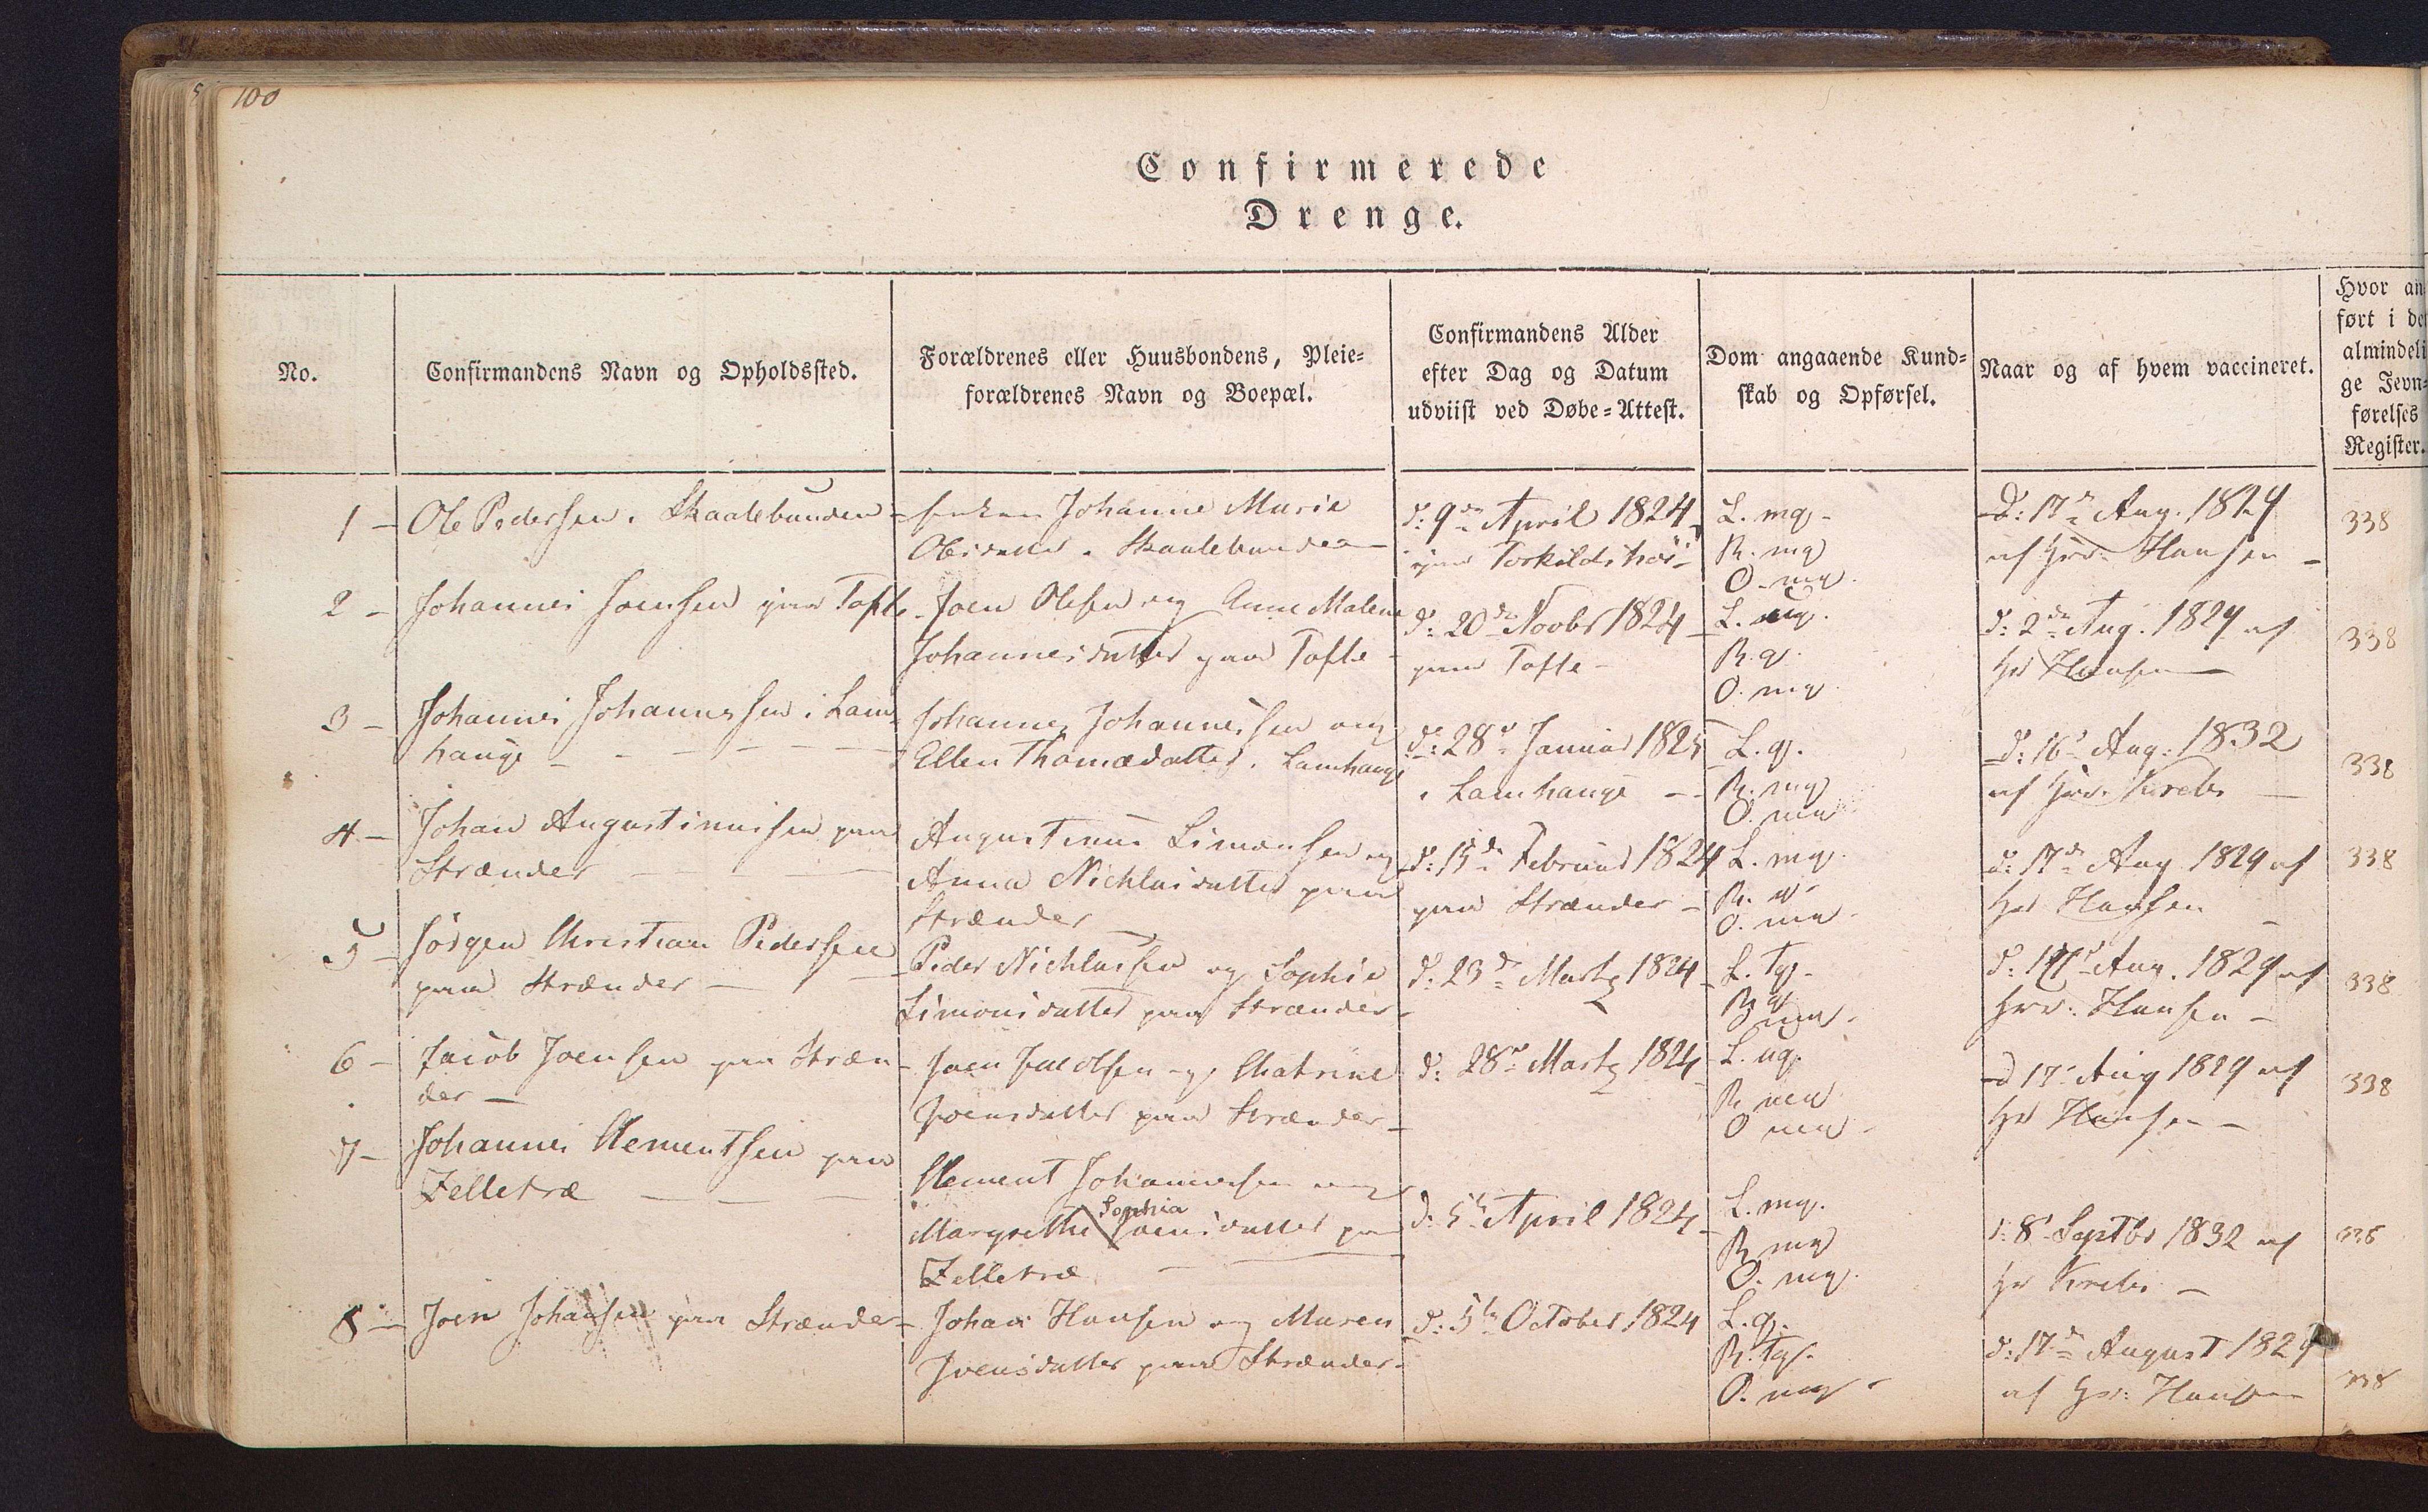 100
Confirmerede
Drenge.
No.
Confirmandens Navn og Opholdssted.
Forældrenes eller Huusbondens, Pleie=
forældrenes Navn og Boepæl.
Confirmandens Alder
efter Dag og Datum
udviist ved Døbe=Attest.
Dom angaaende Kund=
skab og Opførsel.
Naar og af hvem vaccineret.
Hvor an
ført i de
almindeli
ge Jevn=
førelses
Register.
1 - Ole Pedersen i Skaalebunden -
Enken Johanne Marie
Olesdatter i Skaalebunden
d: 9de April 1824
paa Torkildshøi -
L. mg -
R. mg
O. mg.
D: 17de Aug. 1829
af Hrr: Hansen -
338
2 - Johannes Joensen paa Tofte
Joen Olesen og Anne Malene
Johannesdatter paa Tofte -
d: 20de Novbr 1824
paa Tofte -
L. ug.
R. g.
O. mg.
d: 2de Aug. 1829 af
Hr Hansen
338
3 - Johannes Johannesen i Lam=
hauge - - - - -
Johannes Johannesen og
Ellen Thomædatter i Lamhauge
d: 28de Januar 1825
i Lamhauge - -
L. g.
R. mg
O. mg
d: 16de Aug: 1832
af Hrr. Krebs -
338
4 - Johan Augustinussen paa
Strænder - -
Augustinus Simonsen og
Anna Nichlasdatter paa
Strænder
d: 15de Februar 1824
paa Strænder -
L. mg.
R. g
O. mg.
d: 17de Aug 1829 af
Hrr Hansen -
338
5 - Jørgen Christian Pedersen
paa Strænder - -
Peder Nichlassen og Sophie
Simonsdatter paa Strænder -
d: 23de Martz 1824
L. Tg.
R. g
O. mg.
d: 17de Aug. 1829 af
Hrr: Hansen -
338
6 - Jacob Joensen paa Stræn
der -
Joen Jacobsen og Chatrine
Joensdatter paa Strænder -
d: 28de Martz 1824
L. ug.
R. mg
O. mg.
d 17de Aug 1829 af
Hr Hansen -
338
7 - Johannes Clementsen paa
Zelletræ - - -
Clement Johannesen og
Sophia
Margrethe Joensdatter paa
Zelletræ -
d. 5te April 1824
L. mg.
R. mg
O. mg.
d: 8de Septbr 1832 af
Hr Krebs -
338
8 - Joen Johansen paa Strænder -
Johan Hansen og Maren
Joensdatter paa Strænder -
d: 5te October 1824
L. g.
R. Tg.
O. mg.
d: 17de August 1829
af Hr: Hansen
338